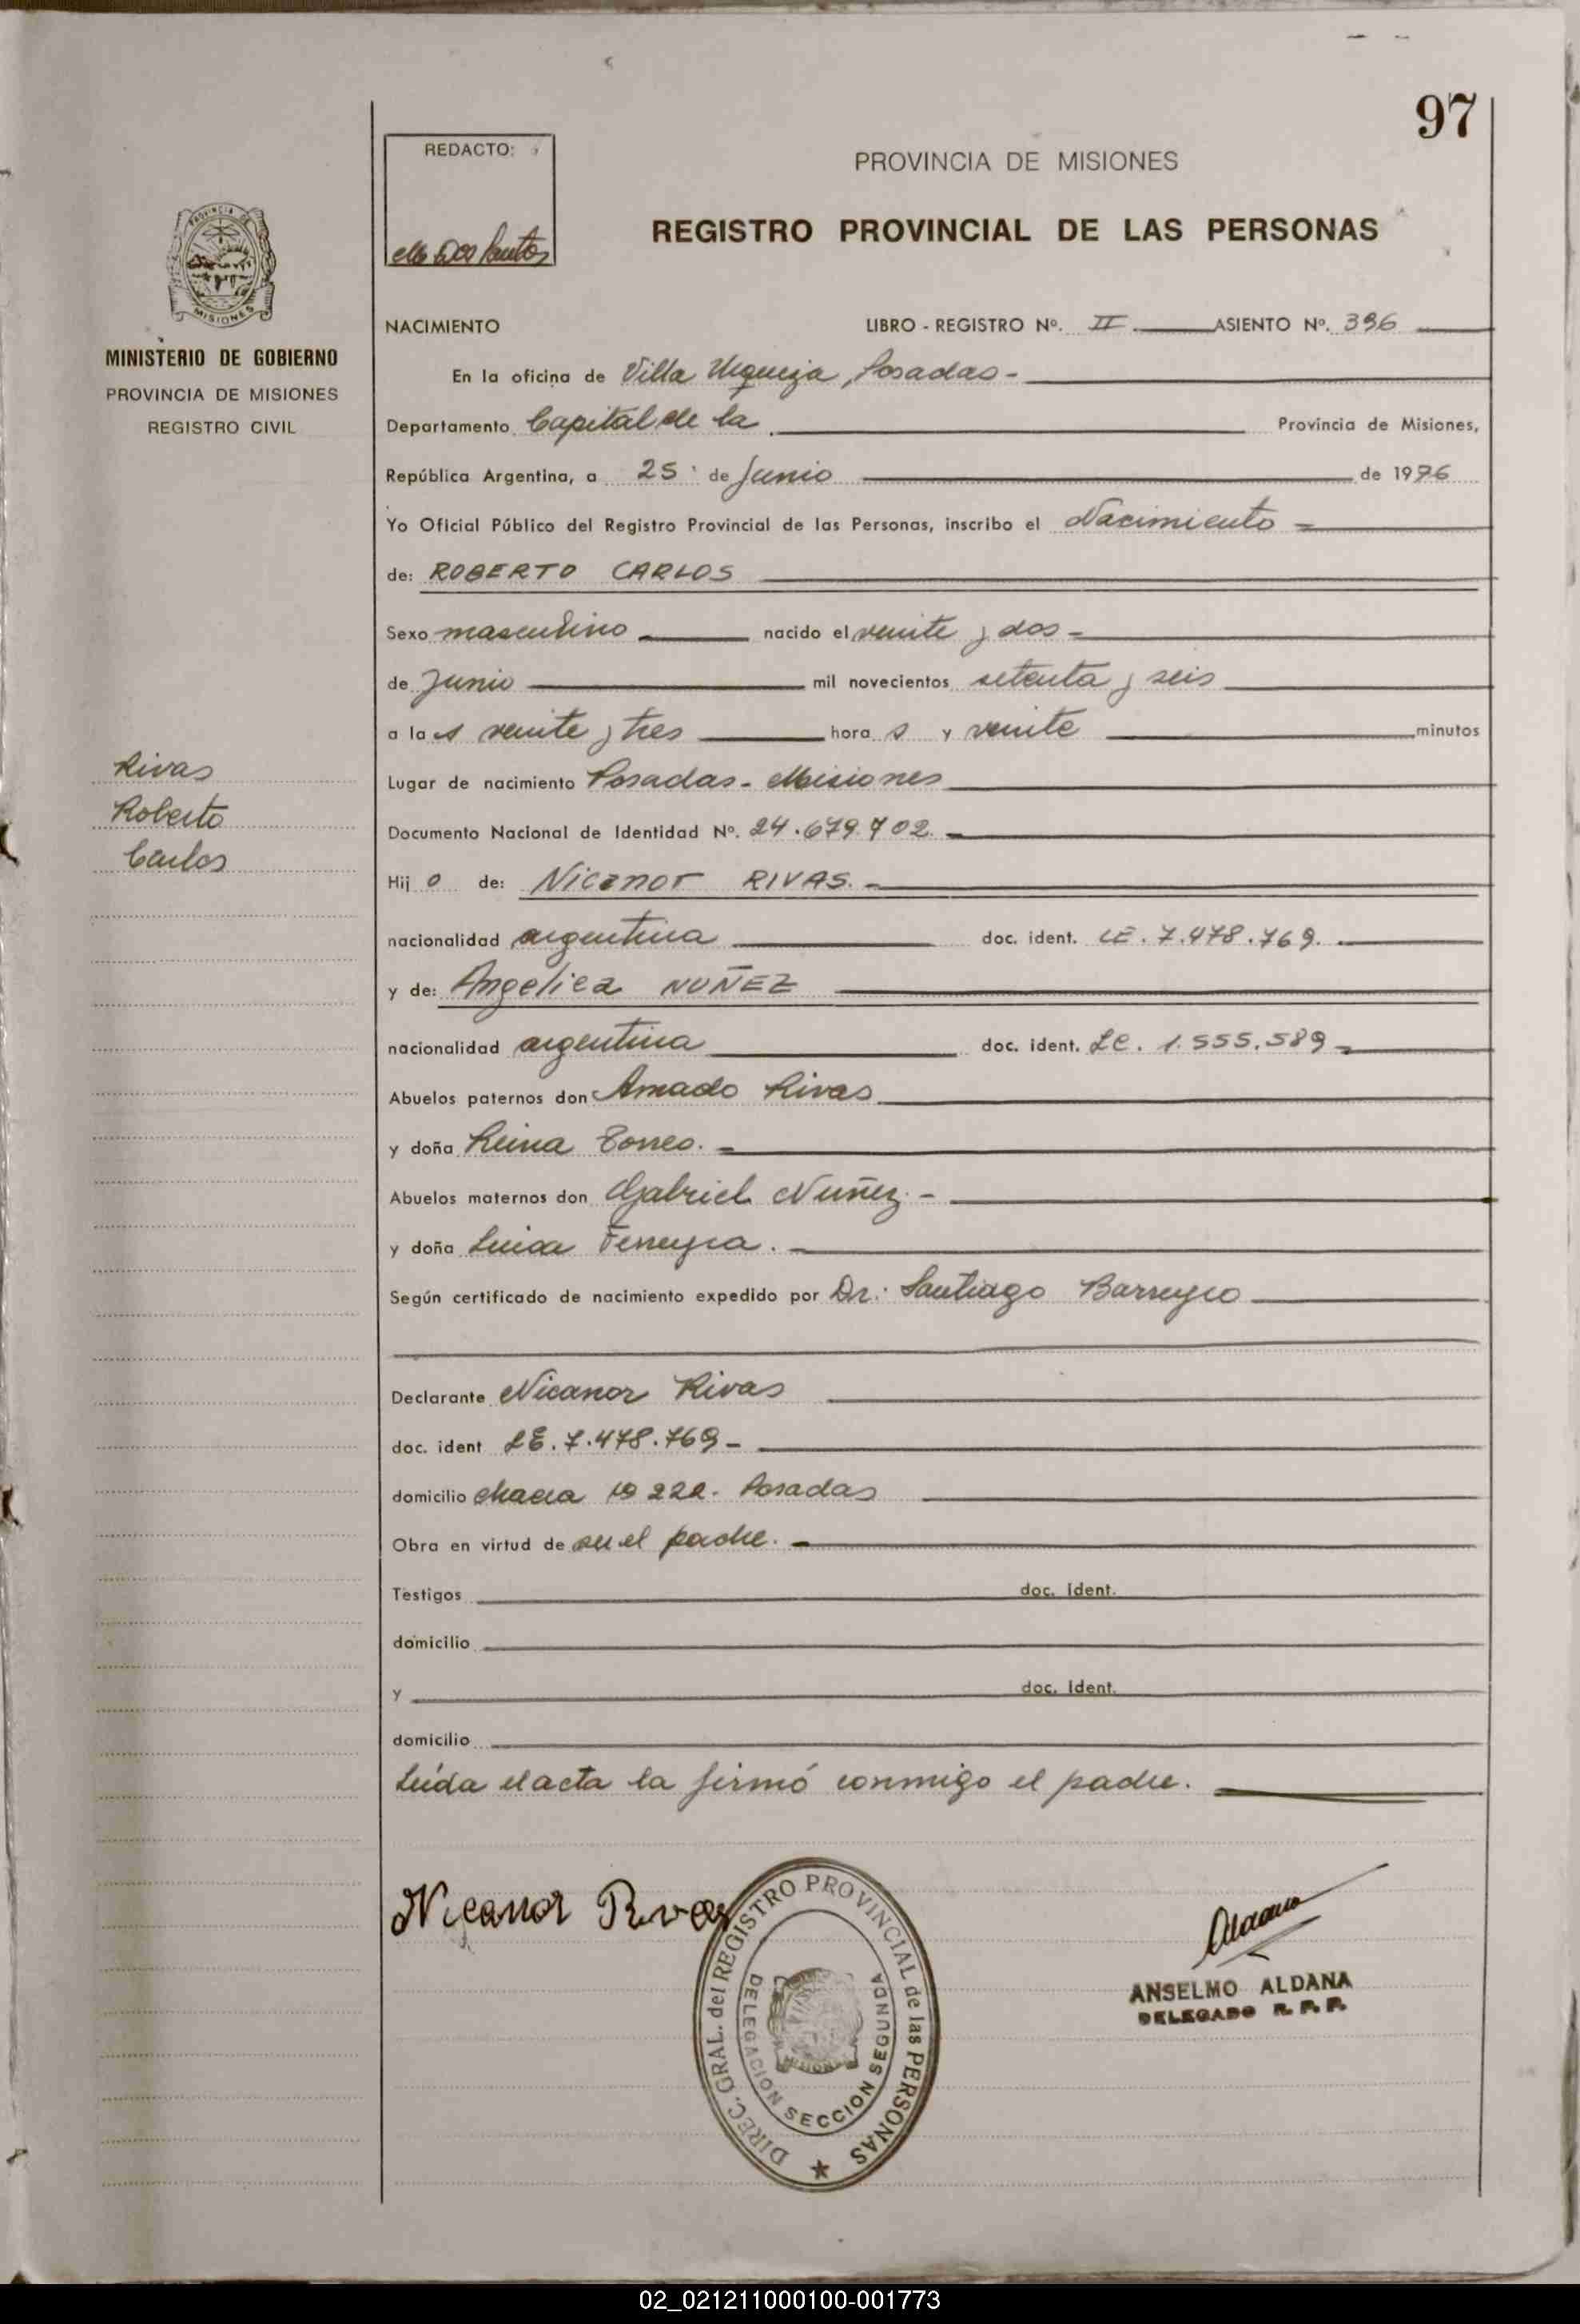 97
REDACTO:
M Dos Santos
PROVINCIA DE MISIONES
REGISTRO PROVINCIAL DE LAS PERSONAS
PROVINCIA DE
MISIONES
MINISTERIO DE GOBIERNO
PROVINCIA DE MISIONES
REGISTRO CIVIL
NACIMIENTO LIBRO - REGISTRO Nº. II ASIENTO Nº. 396
En la oficina de Villa Urquiza, Posadas-
Departamento Capital de la Provincia de Misiones,
República Argentina, a 25 de Junio de 1976
Yo Oficial Público del Registro Provincial de las Personas, inscribo el Nacimiento
de: ROBERTO CARLOS
Sexo masculino nacido el veinte y dos
de Junio mil novecientos setenta y seis
a las veinte y tres horas y veinte minutos
Rivas
Roberto
Carlos
Lugar de nacimiento Posadas - Misiones
Documento Nacional de Identidad Nº. 24.679.702
Hijo de: Nicanor RIVAS.
nacionalidad argentina doc. ident. LE. 7.478.769.
y de: Angelica NUÑEZ
nacionalidad argentina doc. ident. LC. 1.555.589
Abuelos paternos don Amado Rivas
y doña Reina Torres.
Abuelos maternos don Gabriel Nuñez.
y doña Luisa Ferreyra.
Según certificado de nacimiento expedido por Dr. Santiago Barreyro
Declarante Nicanor Rivas
doc. ident LE. 7.478.769
domicilio chacra 222. Posadas
Obra en virtud de ser el padre.
Testigos doc. ident.
domicilio
y doc. ident.
domicilio
Leída el acta la firmó conmigo el padre.
Nicanor Rivas
DIREC. GRAL. del REGISTRO PROVINCIAL de las PERSONAS
DELEGACION SECCION SEGUNDA
Aldana
ANSELMO ALDANA
DELEGADO R. P. P.
02_021211000100-001773